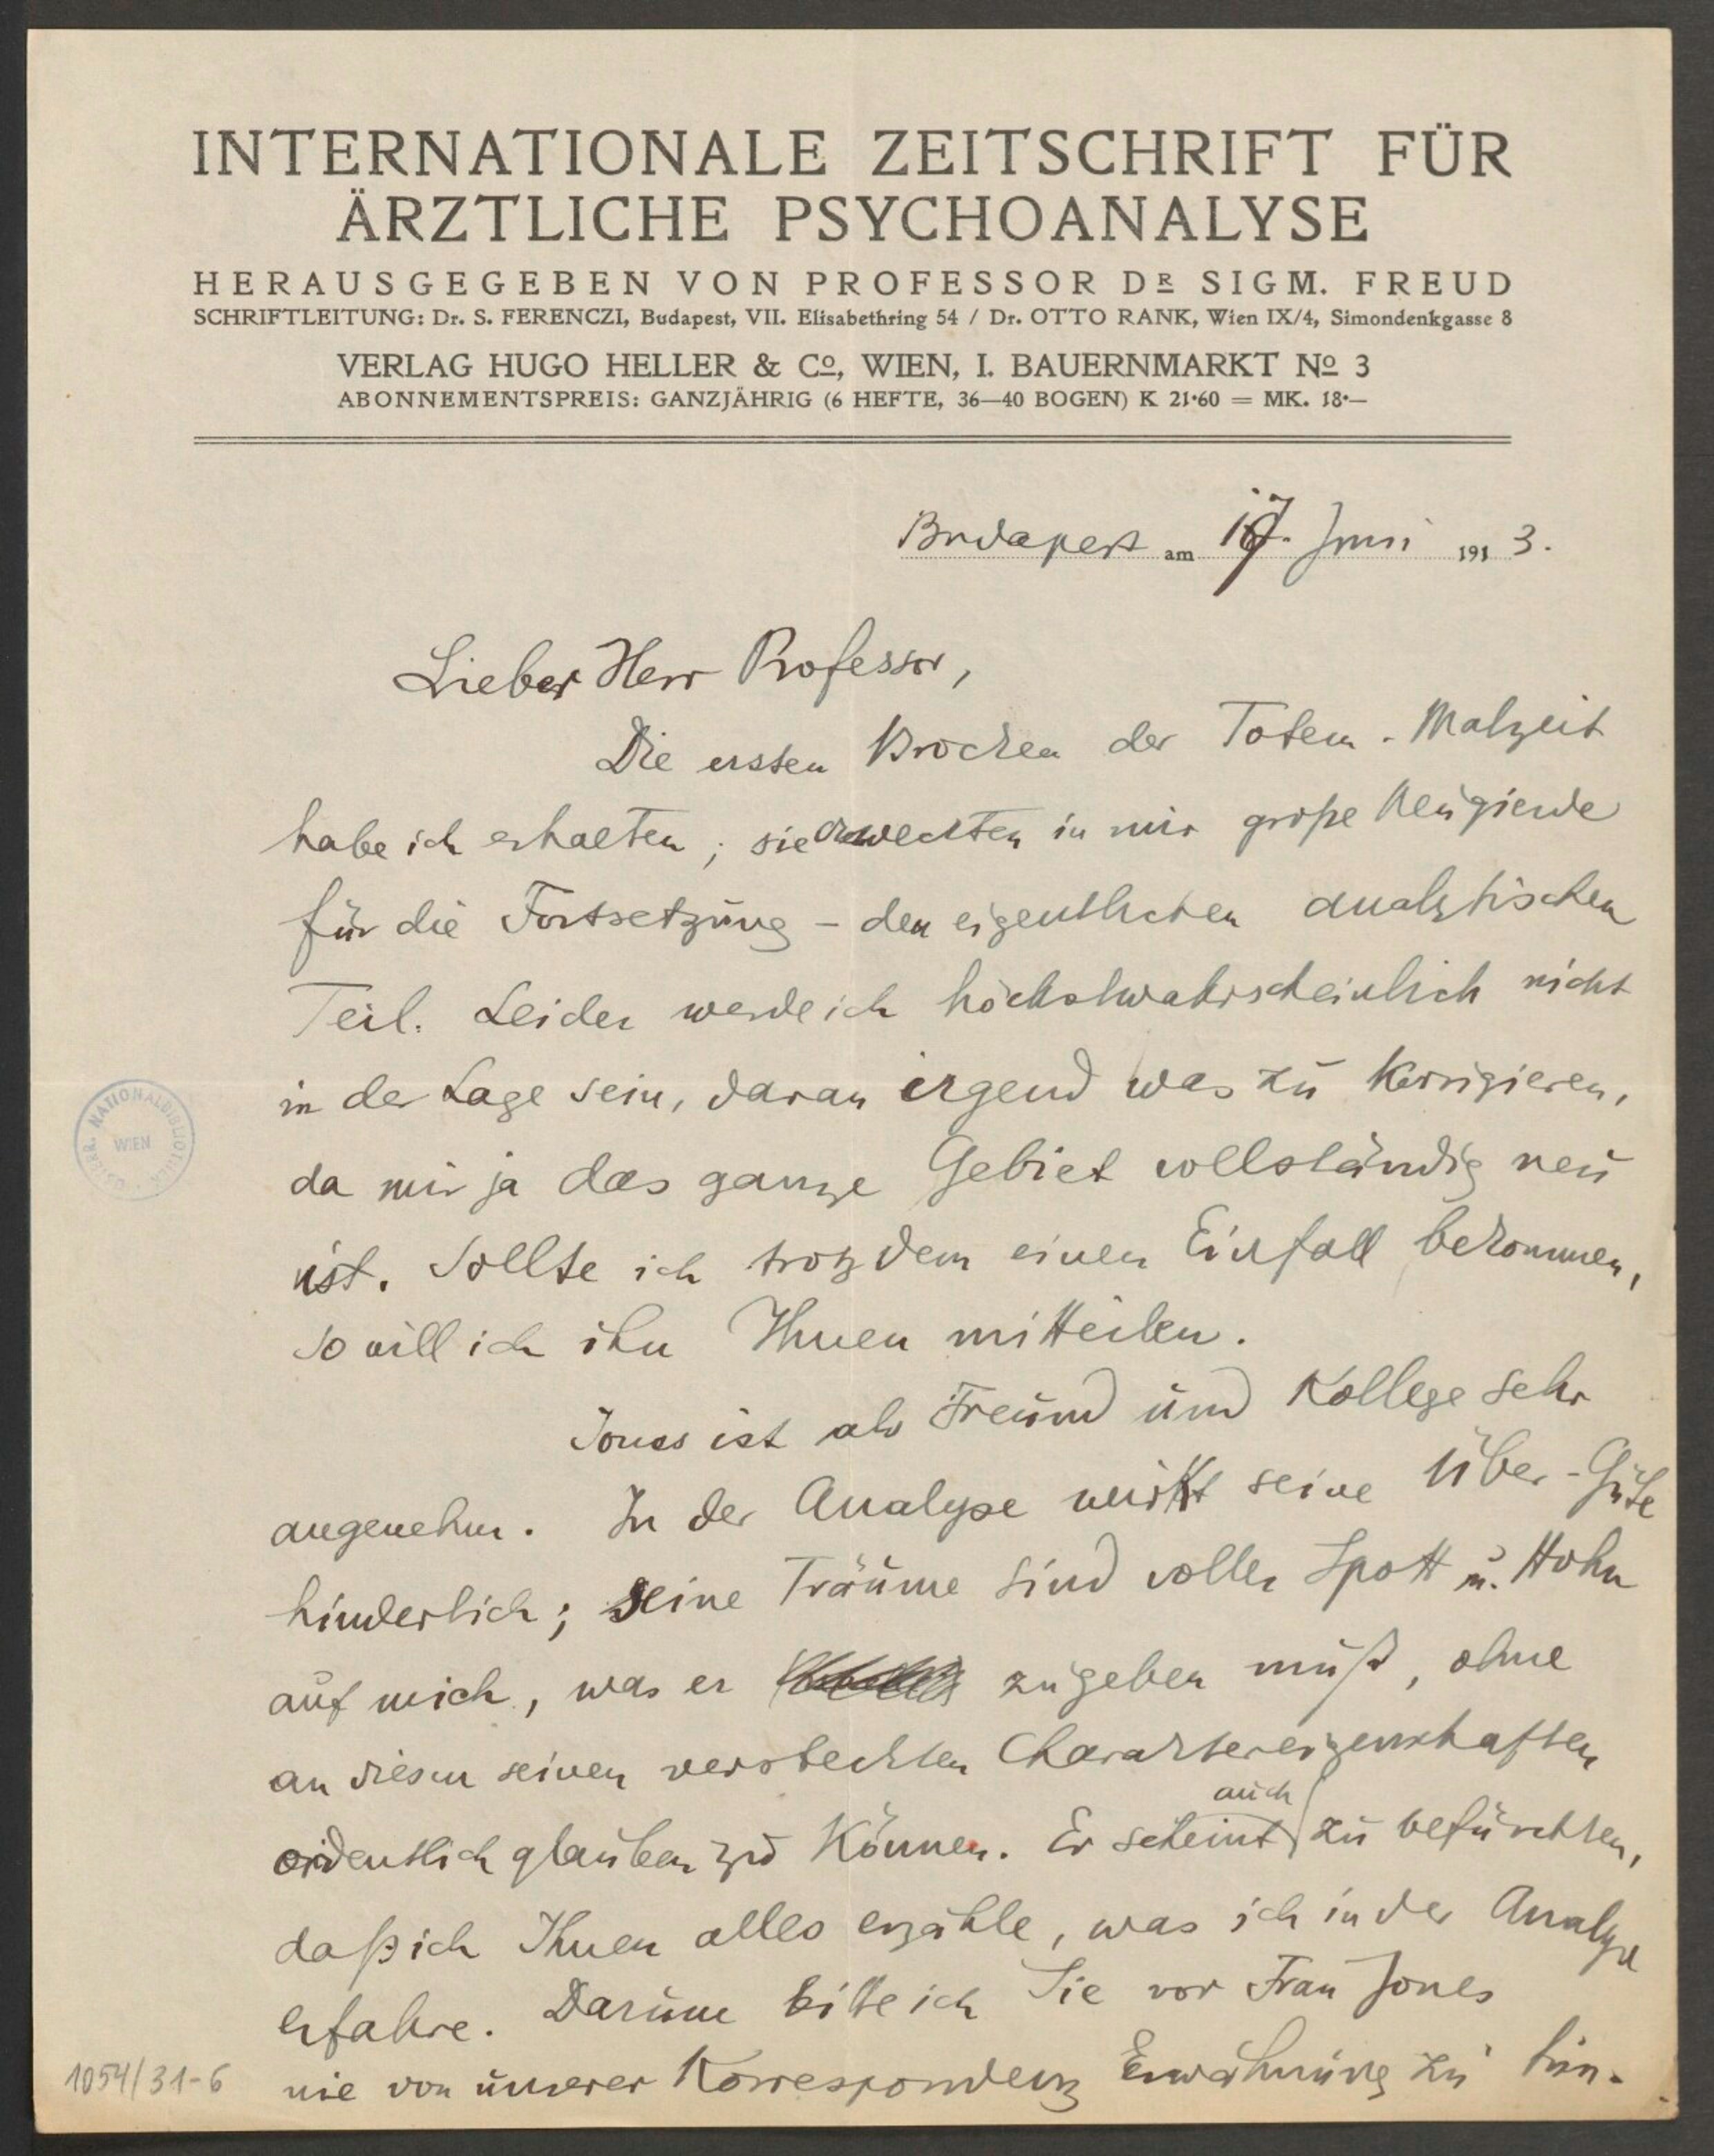 INTERNATIONALE ZEITSCHRIFT FÜR
ÄRZTLICHE PSYCHOANALYSE
HERAUSGEGEBEN VON PROFESSOR DR SIGM. FREUD
SCHRIFTLEITUNG: Dr. S. FERENCZI, Budapest, VII. Elisabethring 54 / Dr. OTTO RANK, Wien IX/4, Simondenkgasse 8
VERLAG HUGO HELLER & Co, WIEN, I. BAUERNMARKT No 3
ABONNEMENTSPREIS: GANZJÄHRIG (6 HEFTE, 36—40 BOGEN) K 21·60 = MK. 18·—
Budapest am 17. Juni 1913.
Lieber Herr Professor,
Die ersten Brocken der Totem-Malzeit
habe ich erhalten; sie erweckten in mir große Neugierde
für die Fortsetzung – den eigentlichen analytischen
Teil. Leider werde ich höchstwahrscheinlich nicht
in der Lage sein, daran irgend was zu korrigieren,
da mir ja das ganze Gebiet vollständig neu
ist. Sollte ich trotzdem einen Einfall bekommen,
so will ich ihn Ihnen mitteilen.
Jones ist als Freund und Kollege sehr
angenehm. In der Analyse wirkt seine Über-Güte
hinderlich; seine Träume sind voller Spott u. Hohn
auf mich, was er zugeben muß, ohne
an diesen seinen versteckten Charaktereigenschaften
ordentlich glauben zu können. Er scheint auch zu befürchten,
daß ich Ihnen alles erzähle, was ich in der Analyse
erfahre. Darum bitte ich Sie vor Frau Jones
nie von unserer Korrespondenz Erwähnung zu tun.
ÖSTERR. NATIONALBIBLIOTHEK
WIEN
1054/31-6